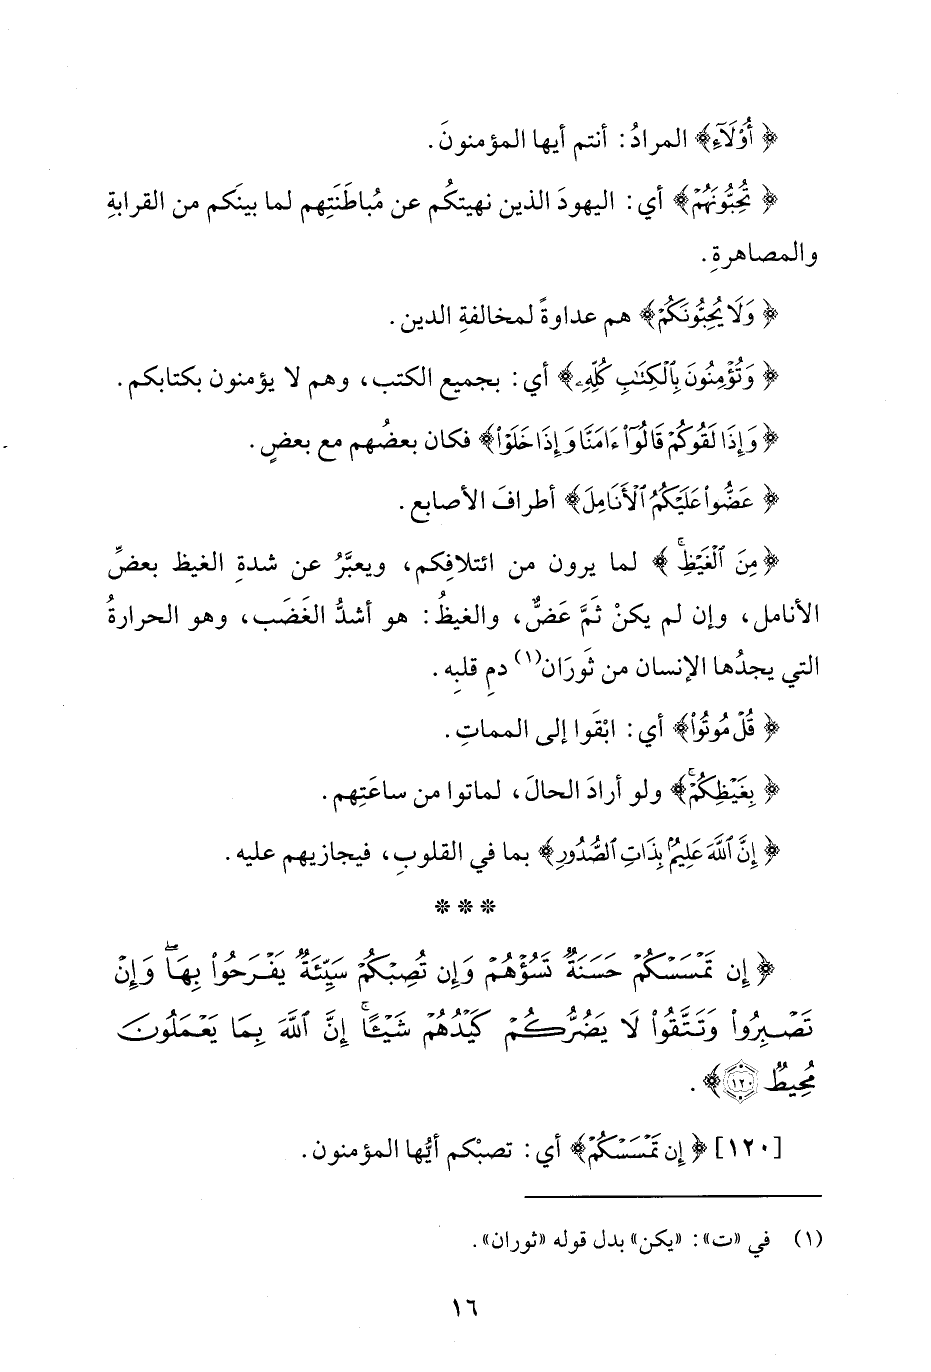 ﴿أُوْلَآءِ﴾ المرادُ: أنتم أيها المؤمنونَ.
﴿تُحِبُّونَهُمْ﴾ أي: اليهودَ الذين نهيتكُم عن مُباطَنَتِهم لما بينَكم من القرابةِ
والمصاهرةِ.
﴿وَلَا يُحِبُّونَكُمْ﴾ هم عداوةً لمخالفةِ الدين.
﴿وَتُؤْمِنُونَ بِٱلْكِتَٰبِ كُلِّهِۦ﴾ أي: بجميع الكتب، وهم لا يؤمنون بكتابكم.
﴿وَإِذَا لَقُوكُمْ قَالُوٓا۟ ءَامَنَّا وَإِذَا خَلَوْا۟﴾ فكان بعضُهم مع بعضٍ.
﴿عَضُّوا۟ عَلَيْكُمُ ٱلْأَنَامِلَ﴾ أطرافَ الأصابع.
﴿مِنَ ٱلْغَيْظِ ۚ﴾ لما يرون من ائتلافِكم، ويعبَّرُ عن شدةِ الغيظ بعضِّ
الأنامل، وإن لم يكنْ ثَمَّ عَضٌّ، والغيظُ: هو أشدُّ الغَضَب، وهو الحرارةُ
التي يجدُها الإنسان من ثَورَان(١) دمِ قلبِه.
﴿قُلْ مُوتُوا۟﴾ أي: ابْقَوا إلى المماتِ.
﴿بِغَيْظِكُمْ ۗ﴾ ولو أرادَ الحالَ، لماتوا من ساعَتِهم.
﴿إِنَّ ٱللَّهَ عَلِيمٌۢ بِذَاتِ ٱلصُّدُورِ﴾ بما في القلوبِ، فيجازيهم عليه.
* * *
﴿إِن تَمْسَسْكُمْ حَسَنَةٌ تَسُؤْهُمْ وَإِن تُصِبْكُمْ سَيِّئَةٌ يَفْرَحُوا۟ بِهَا ۖ وَإِن
تَصْبِرُوا۟ وَتَتَّقُوا۟ لَا يَضُرُّكُمْ كَيْدُهُمْ شَيْـًٔا ۗ إِنَّ ٱللَّهَ بِمَا يَعْمَلُونَ
مُحِيطٌ ١٢٠﴾.
[١٢٠] ﴿إِن تَمْسَسْكُمْ﴾ أي: تصبْكم أيُّها المؤمنون.
(١) في «ت»: «يكن» بدل قوله «ثوران».
١٦